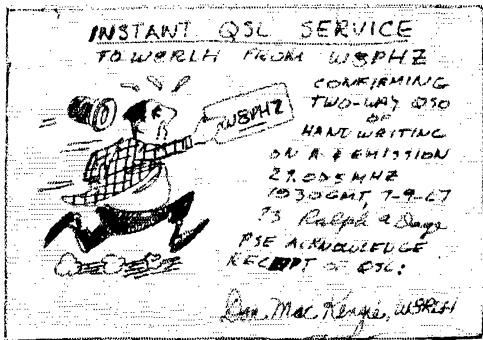 INSTANT QSL SERVICE
TO W8RLH FROM W8PHZ
W8PHZ
CONFIRMING
TWO-WAY QSO
OF
HANDWRITING
ON A EMISSION
MHZ
1930 GMT, 7-9-67
73 Ralph
PSE ACKNOWLEDGE
RECEIPT OF QSL:
Don Mac Kenzie, W8RLH